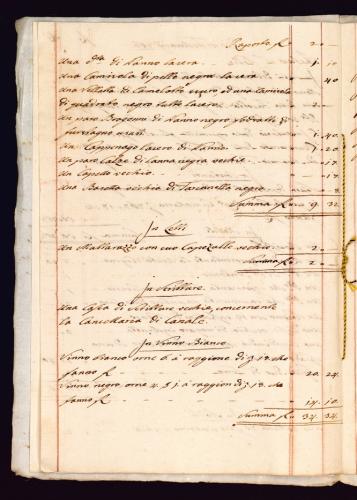 Raporto f 2 -
una d.ta di Panno lacera - - - 1. 10
una Camisola di pelle negra lacera - - 40
una Velletta di Camelotto nero, ed una Camisola
di quadrato negro tutte lacere - - - 2 -
un paro Bragoni di Panno negro foderati di
usati - - - 1. 40
un Tappinego lacero di Panno - - - 1. 20
un paro Calze di lanna negra vecchie - - 17
un Capello vecchio - - - 17
una Baretta vecchia di negro - - 8
Summa f 9. 32
In Letti
un Mattarazzo con suo Capezzalle vecchio - - 2 -
Summa f 2 -
In Scritture
una Cassa di Scritture vecchie, concernente
la Cancellaria di Canale
In Vinno Bianco
Vinno bianco orne 6 à raggione di
fanno f - - - 20. 24
Vinno negro orne 4. à raggion di
fanno f - - - 14. 10
Summa f 34. 34